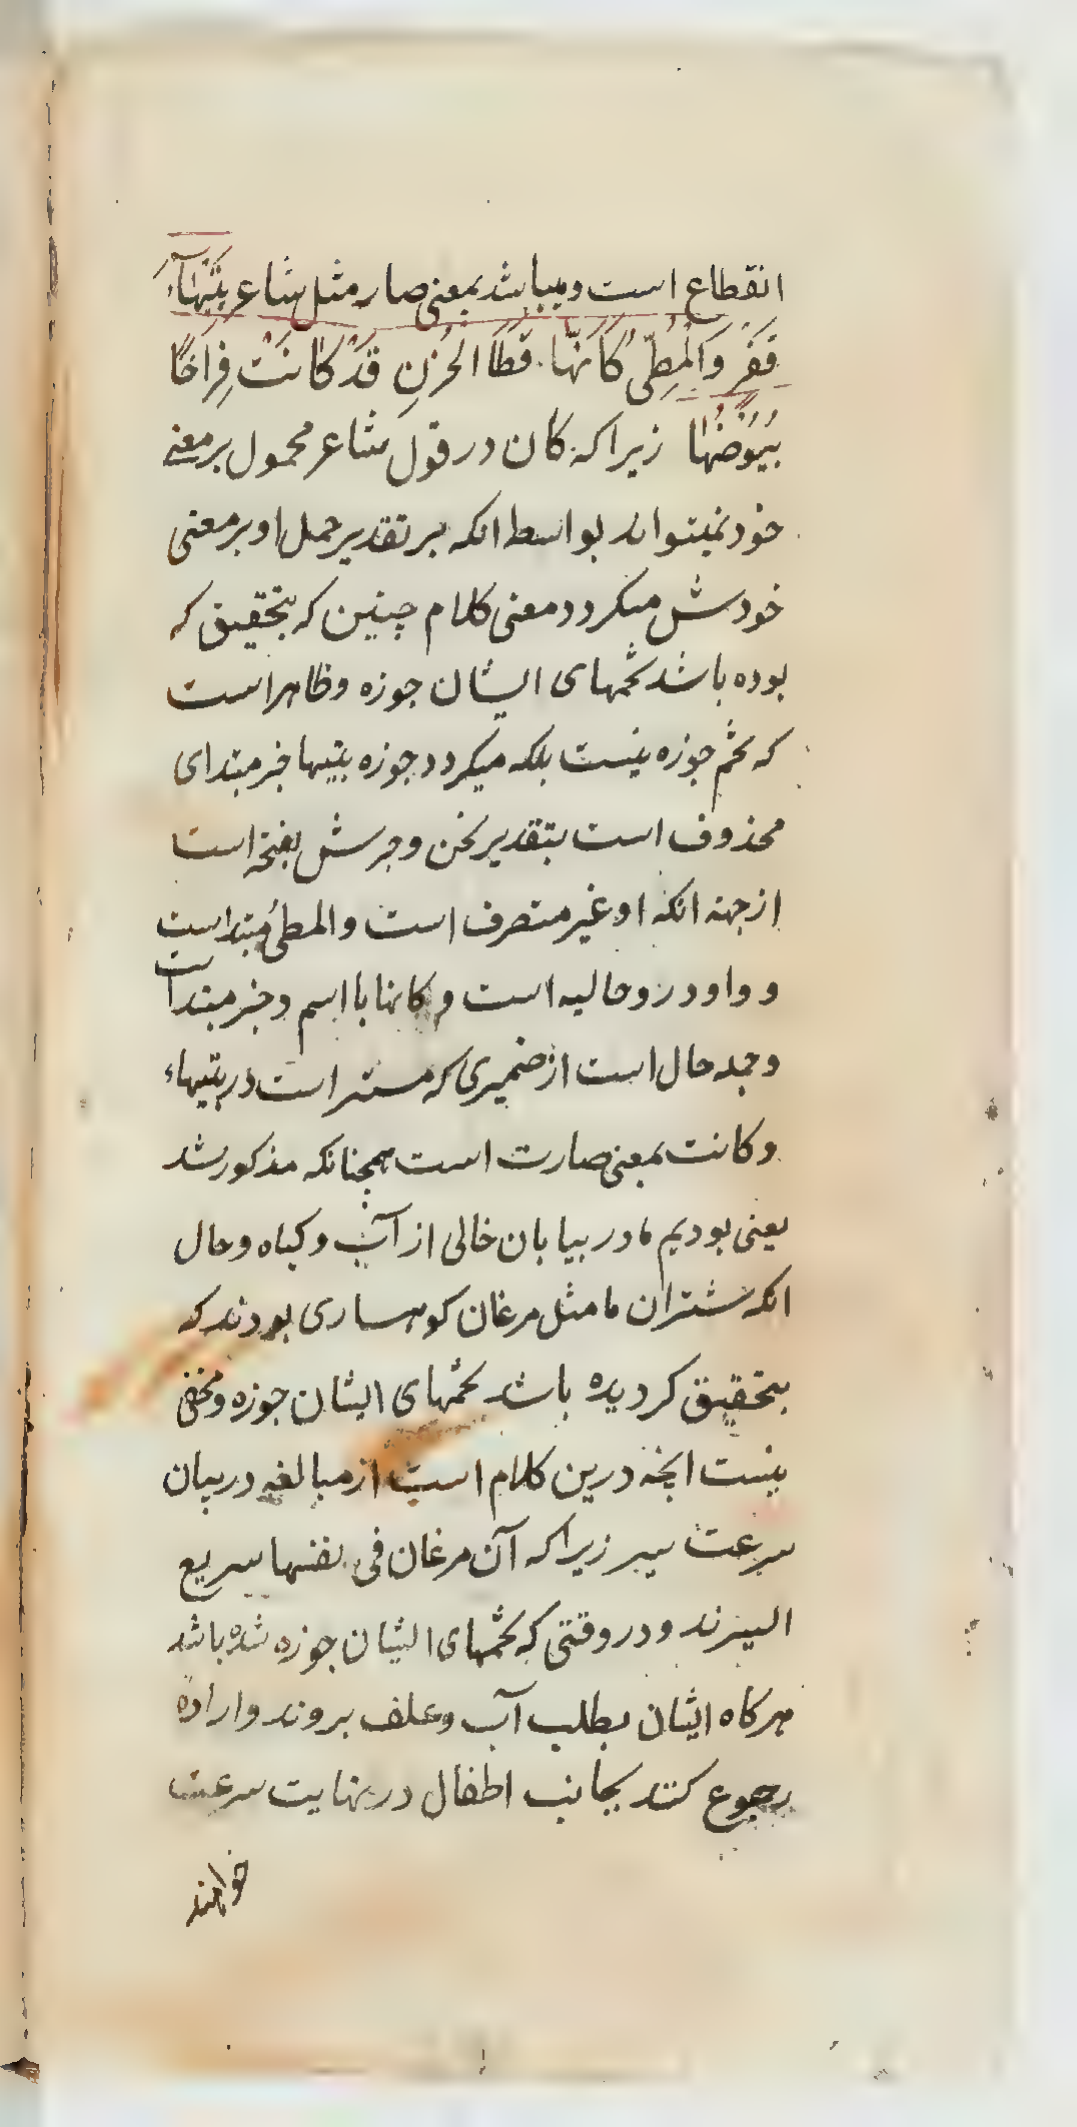 انقطاع است و میباشد بمعنی صار مثل شاعر بِتَیْهَآءَ
قَفْرٍ وَالْمَطِیُّ کَاَنَّهَا قَطَا الْحَزْنِ قَدْ کَانَتْ فِرَاخًا
بُیُوضُهَا زیرا که کان در قول شاعر محمول بر معنی
خود نمیتواند بواسطه انکه بر تقدیر حمل او بر معنی
خودش میکردد معنی کلام چنین که بتحقیق که
بوده باشد تخمهای ایشان جوزه و ظاهر است
که تخم جوزه نیست بلکه میکردد جوزه بتیها خبر مبتدای
محذوف است بتقدیر نحن و جرش بفتحه است
از جهة انکه او غیر منصرف است و المطیُ مبتداست
و واو درو حالیه است و کانها با اسم و خبر مبتدا است
و جمله حال است از ضمیری که مستتر است در بتیهاء
و کانت بمعنی صارت است همچنانکه مذکور شد
یعنی بودیم ما در بیابان خالی از آب و کیاه و حال
انکه شتران ما مثل مرغان کوهساری بودند که
بتحقیق کردیده باشد تخمهای ایشان جوزه و مخفی
نیست انچه درین کلام است از مبالغه در بیان
سرعت سیر زیرا که آن مرغان فی نفسها سریع
السیرند و در وقتی که تخمهای ایشان جوزه شده باشد
هرکاه ایشان بطلب آب و علف بروند و اراده
رجوع کنند بجانب اطفال در نهایت سرعت
خواهند